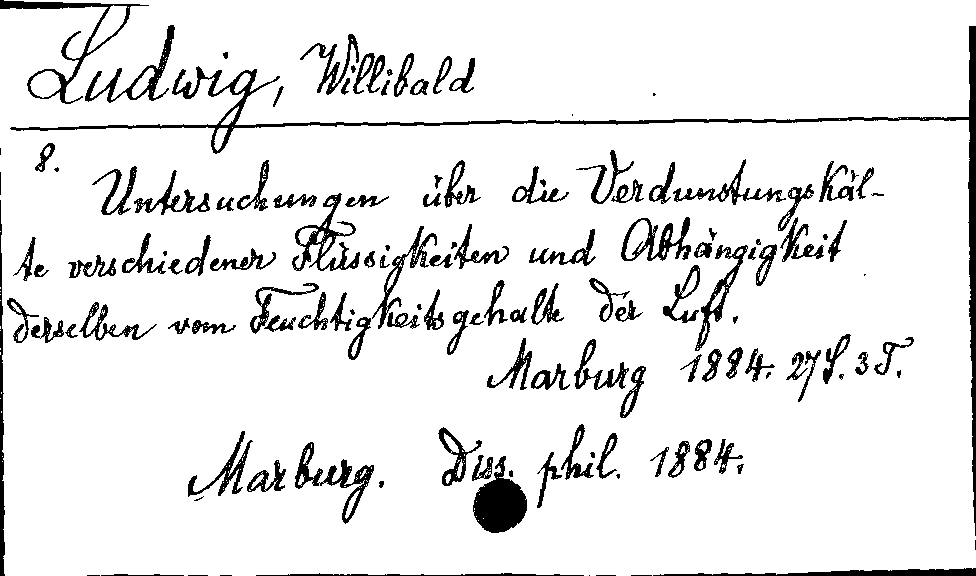 Ludwig, Willibald
8.
Untersuchungen über die Verdunstungskäl-
te verschiedener Flüssigkeiten und Abhängigkeit
derselben vom Feuchtigkeitsgehalte der Luft.
Marburg 1884. 27 S. 3 T.
Marburg. Diss. phil. 1884.